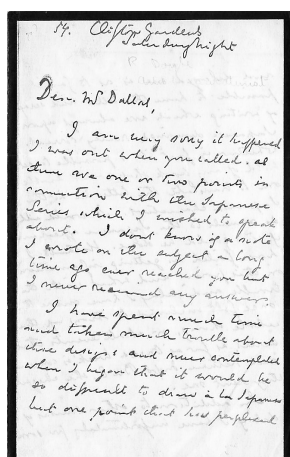 54. Clifton Gardens
Saturday night
Dear Mr Dallas,
I am very sorry it happened
I was out when you called. as
there are one or two points in
connection with the Japanese
Series which I wished to speak
about. I don't know if a note
I wrote on the subject a long
time ago ever reached you but
I never received any answer.
I have spent much time
and taken much trouble about
these designs and never contemplated
when I began that it would be
so difficult to draw à la Japanese
but one point that has perplexed